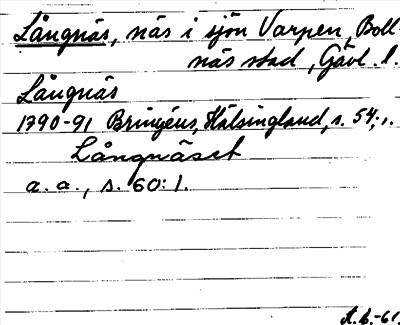 Långnäs, näs i sjön Varpen, Boll-
näs stad, Gävl. l.
Långnäs
1790-91 Bringéus, Hälsingland, s. 54:1.
Långnäset
a. a., s. 60:1.
A.b.-61